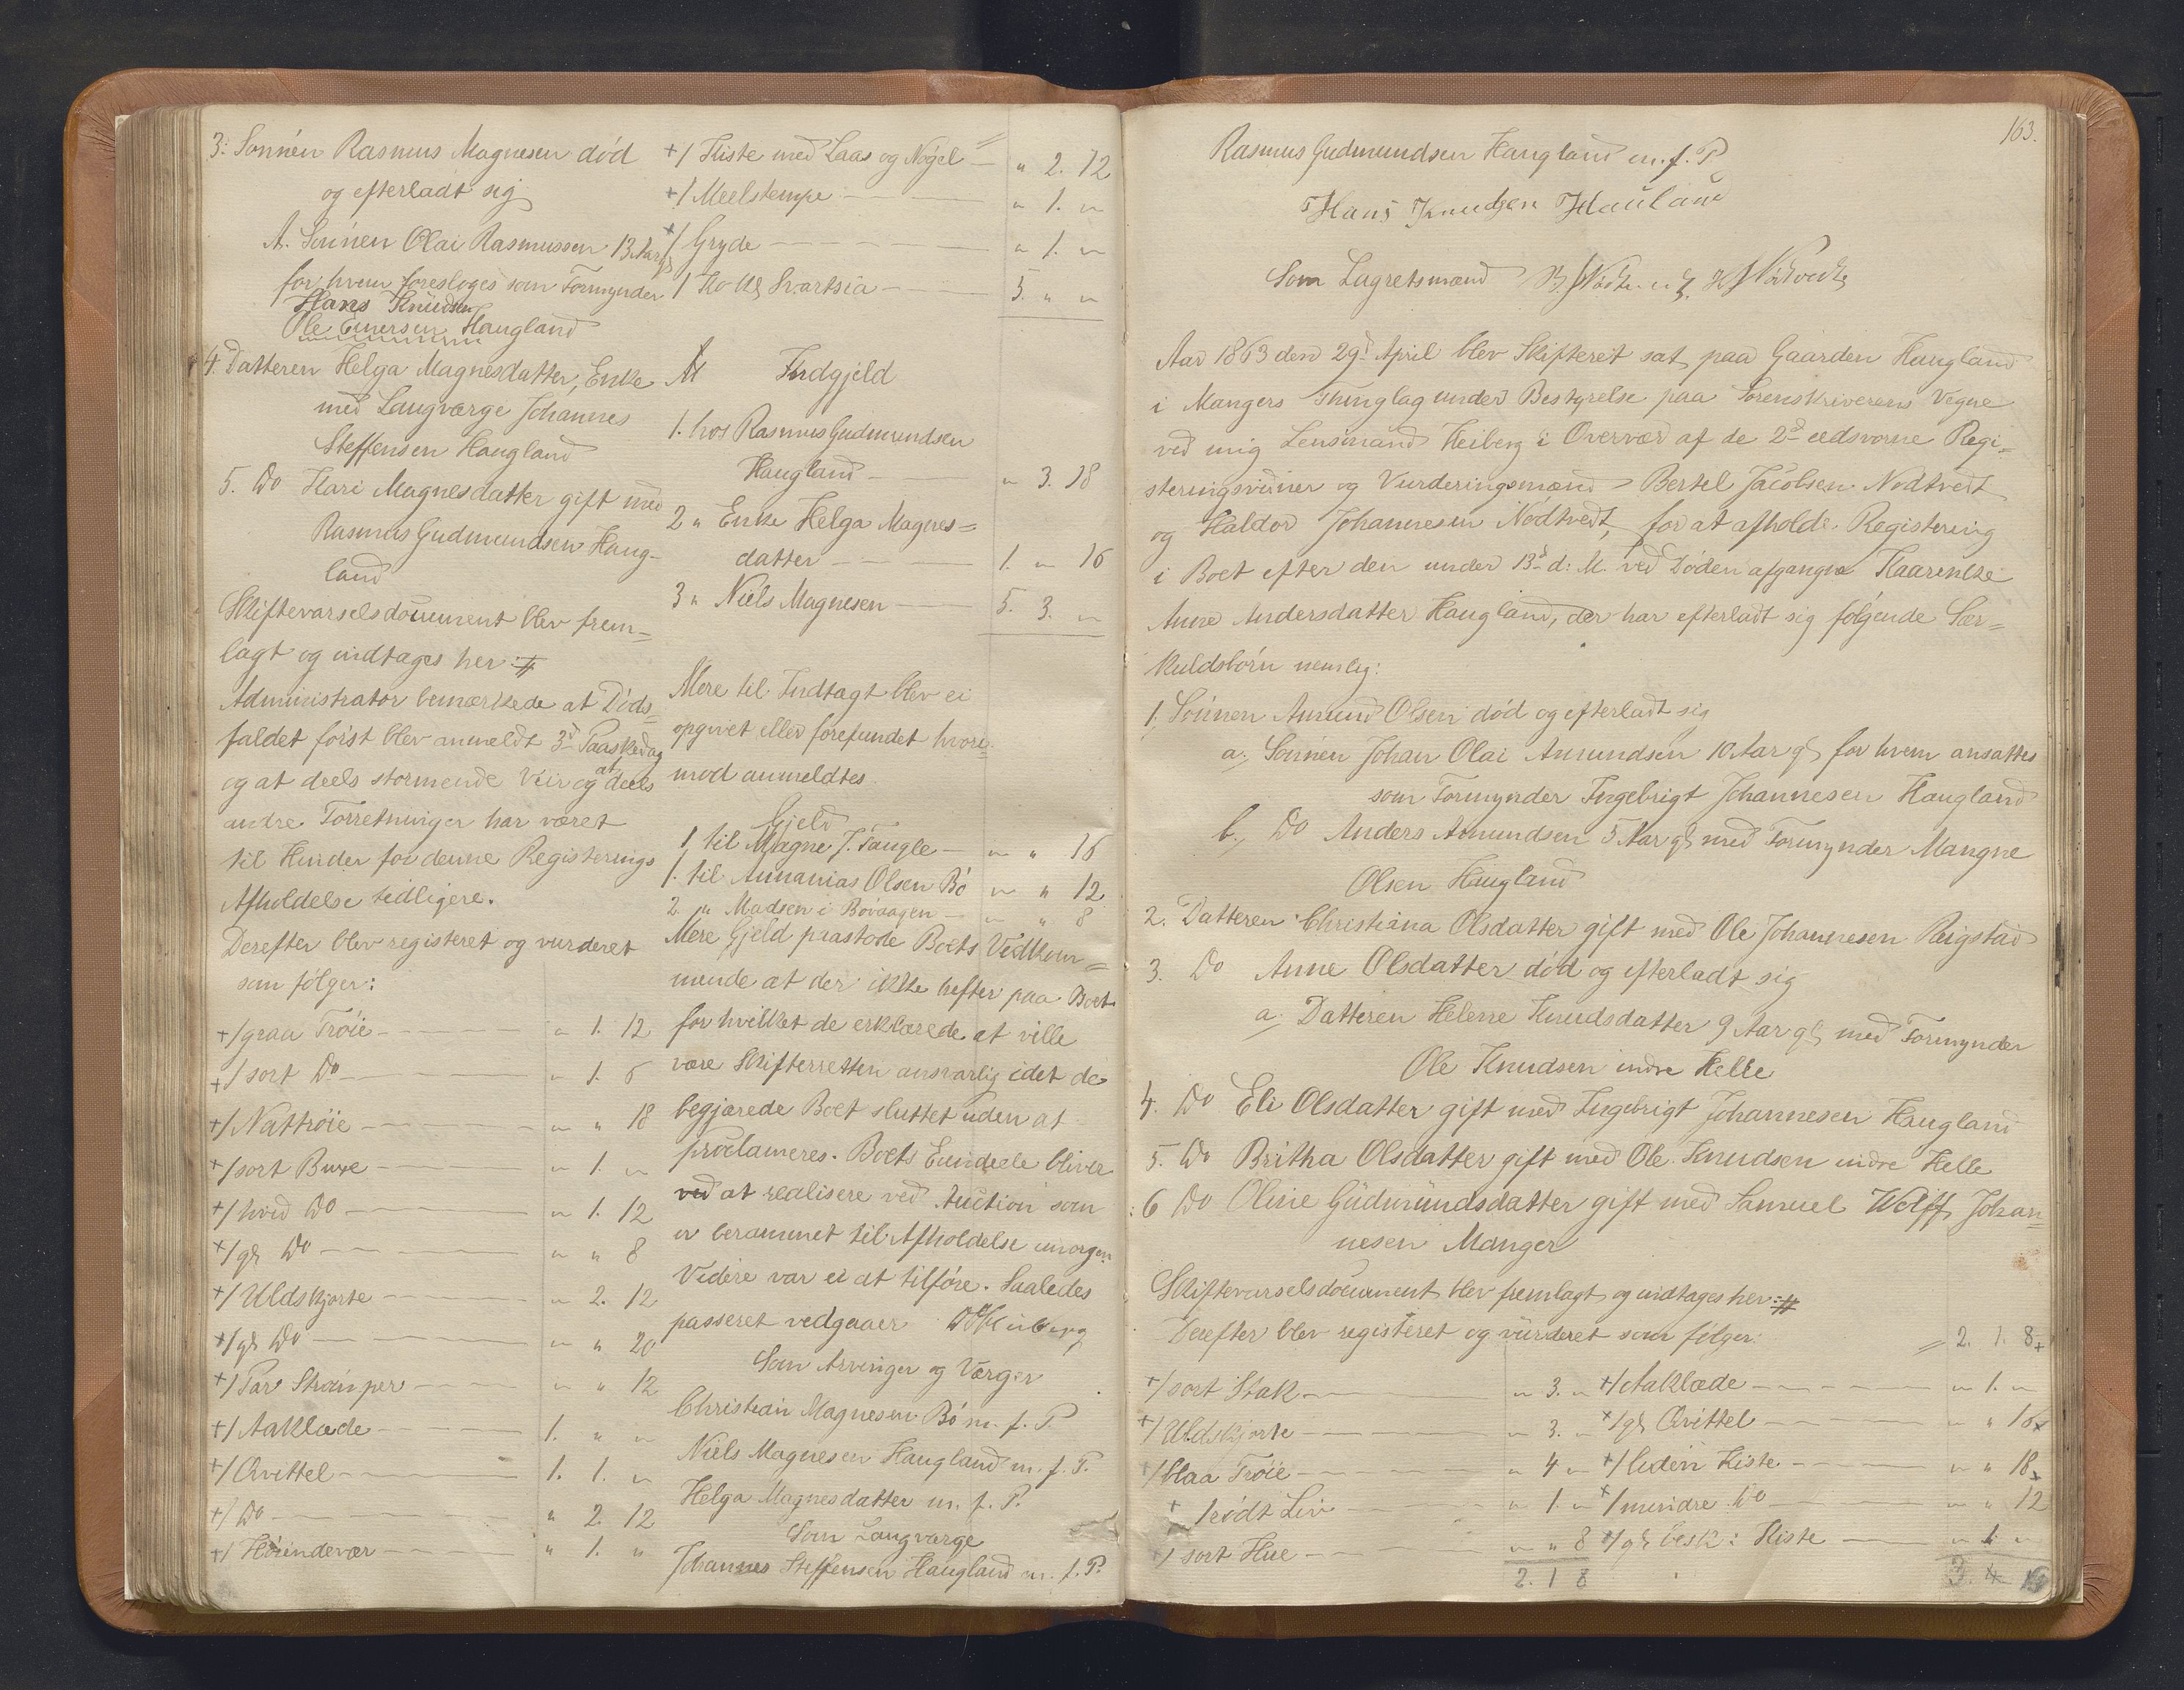 3. Sønnen Rasmus Magnesen død
og efterladt sig
A. Sønnen Olai Rasmussen 13 Aar gl
for hvem foresloges som Formynder
Hans Knudsen
Ole Einersen Haugland
4. Datteren Helga Magnesdatter, Enke
med Laugværge Johannes
Steffensen Haugland
5. Do Kari Magnesdatter gift med
Rasmus Gudmundsen Haug-
land
Skiftevarselsdocument blev frem=
lagt og indtages her #
Administrator bemærkede at Døds=
faldet først blev anmeldt 3d Paaskedag
og at deels stormende Veir og at deels
andre Forretninger har været
til Hinder for denne Registerings
Afholdelse tidligere.
Derefter blev registeret og vurderet
som følger:
+1 graa Trøie - " 1. 12
+1 sort Do - " 1. 6
+1 Nattrøie - " " 18
+1 sort Buxe - " 1. "
+1 hvid Do - " 1. 12
+1 gl Do - " " 8
+1 Uldskjorte - " 2. 12
+1 gl Do - " " 20
+1 Par Strømper - " " 12
+1 Aaklæde - 1. " "
+1 Qvittel - 1. 1. "
+1 Do - " 2. 12
+1 Høiendevær - " 1. "
+1 Kiste med Laas og Nøgel - " 2. 12
+1 Meelstampe - " 1. "
+1 Gryde - " 1. "
1 Ko Kl Svartsia - 5. " "
Indgjeld
1. hos Rasmus Gudmundsen
Haugland - " 3. 18
2 " Enke Helga Magnes=
datter - 1. " 16
3 " Niels Magnesen - 5. 3. "
Mere til Indtægt blev ei
opgivet eller forefundet hvori=
mod anmeldtes
Gjeld
1. til Magne J. Taugle - " " 16
1. til Annanias Olsen Bø " " 12
2. " Madsen i Bøvaagen - " " 8
Mere Gjeld paastode Boets Vedkom=
mende at der ikke hefter paa Boet
for hvilket de erklærede at ville
være Skifteretten ansvarlig idet de
begjærede Boet sluttet uden at
proclameres. Boets Eiendele bliver
ved at realisere ved Auction som
er berammet til Afholdelse imorgen.
Videre var ei at tilføre. Saaledes
passeret vedgaaer Heiberg
Som Arvinger og Værger
Christian Magnesen Bø m. f. P.
Niels Magnesen Haugland m. f. P.
Helga Magnesdatter m. f. P.
Som Laugværge
Johannes Steffensen Haugland m. f. P.
163.
Rasmus Gudmundsen Haugland m. f. P.
Hans Knudsen Hauland
Som Lagretsmænd
Aar 1863 den 29d April blev Skifteret sat paa Gaarden Haugland
i Mangers Thinglag under Bestyrelse paa Sorenskriverens Vegne
ved mig Lensmand Heiberg i Overvær af de 2d eedsvorne Regi=
steringsvidner og Vurderingsmænd Bertel Jacobsen Nødtvedt
og Haldor Johannesen Nødtvedt, for at afholde Registering
i Boet efter den under 13d d: M. ved Døden afgangne Kaarenke
Anne Andersdatter Haugland, der har efterladt sig følgende Sær=
kuldsbørn nemlig:
1. Sønnen Amund Olsen død og efterladt sig
a. Sønnen Johan Olai Amundsen 10 Aar gl for hvem ansattes
som Formynder Ingebrigt Johannesen Haugland
b. Do Anders Amundsen 5 Aar gl med Formynder Mangne
Olsen Haugland
2. Datteren Christiana Olsdatter gift med Ole Johannesen Reigstad
3. Do Anne Olsdatter død og efterladt sig
a. Datteren Helene Knudsdatter 9 Aar gl med Formynder
Ole Knudsen indre Helle
4. Do Eli Olsdatter gift med Ingebrigt Johannesen Haugland
5. Do Britha Olsdatter gift med Ole Knudsen indre Helle
6 Do Oline Gudmundsdatter gift med Samuel Wolff Johan=
nesen Manger
Skiftevarselsdocument blev fremlagt og indtages her: #
Derefter blev registeret og vurderet som følger:
2. 1. 8
+1 sort Stak - " 3. " +1 Aaklæde - " 1. "
+1 Uldskjorte - " 3. " +1 gl Qvittel - " " 16
+1 blaa Trøie - " 4 " +1 liden Kiste - " " 18
+ 1 rødt Liv - " 1. " +1 mindre Do - " " 12
+1 sort Hue - " " 8 +1 gl besk: Kiste - " 1. "
2. 1 8